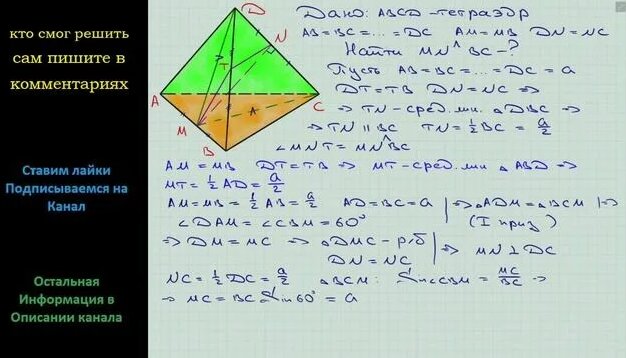 кто смог решить
сам пишите в
комментариях
Ставим лайки
Подписываемся на
Канал
Остальная
Информация в
Описании канала
D
N
T
A
C
M
B
Дано: ABCD - тетраэдр
AB = BC = ... = DC AM = MB DN = NC
Найти MN^BC - ?
Пусть AB = BC = ... = DC = a
DT = TB DN = NC ⇒
⇒ TN - сред. лин. △DBC ⇒
⇒ TN ∥ BC TN = 1/2 BC = a/2
∠MNT = MN^BC
AM = MB DT = TB ⇒ MT - сред. лин △ABD ⇒
MT = 1/2 AD = a/2
AM = MB = 1/2 AB = a/2 AD = BC = a | ⇒ △ADM = △BCM | ⇒
∠DAM = ∠CBM = 60° (I приз)
⇒ DM = MC ⇒ △DMC - р/б | ⇒ MN ⊥ DC
DN = NC
NC = 1/2 DC = a/2 △BCM: Sin∠CBM = MC/BC ⇒
⇒ MC = BC Sin60° = a